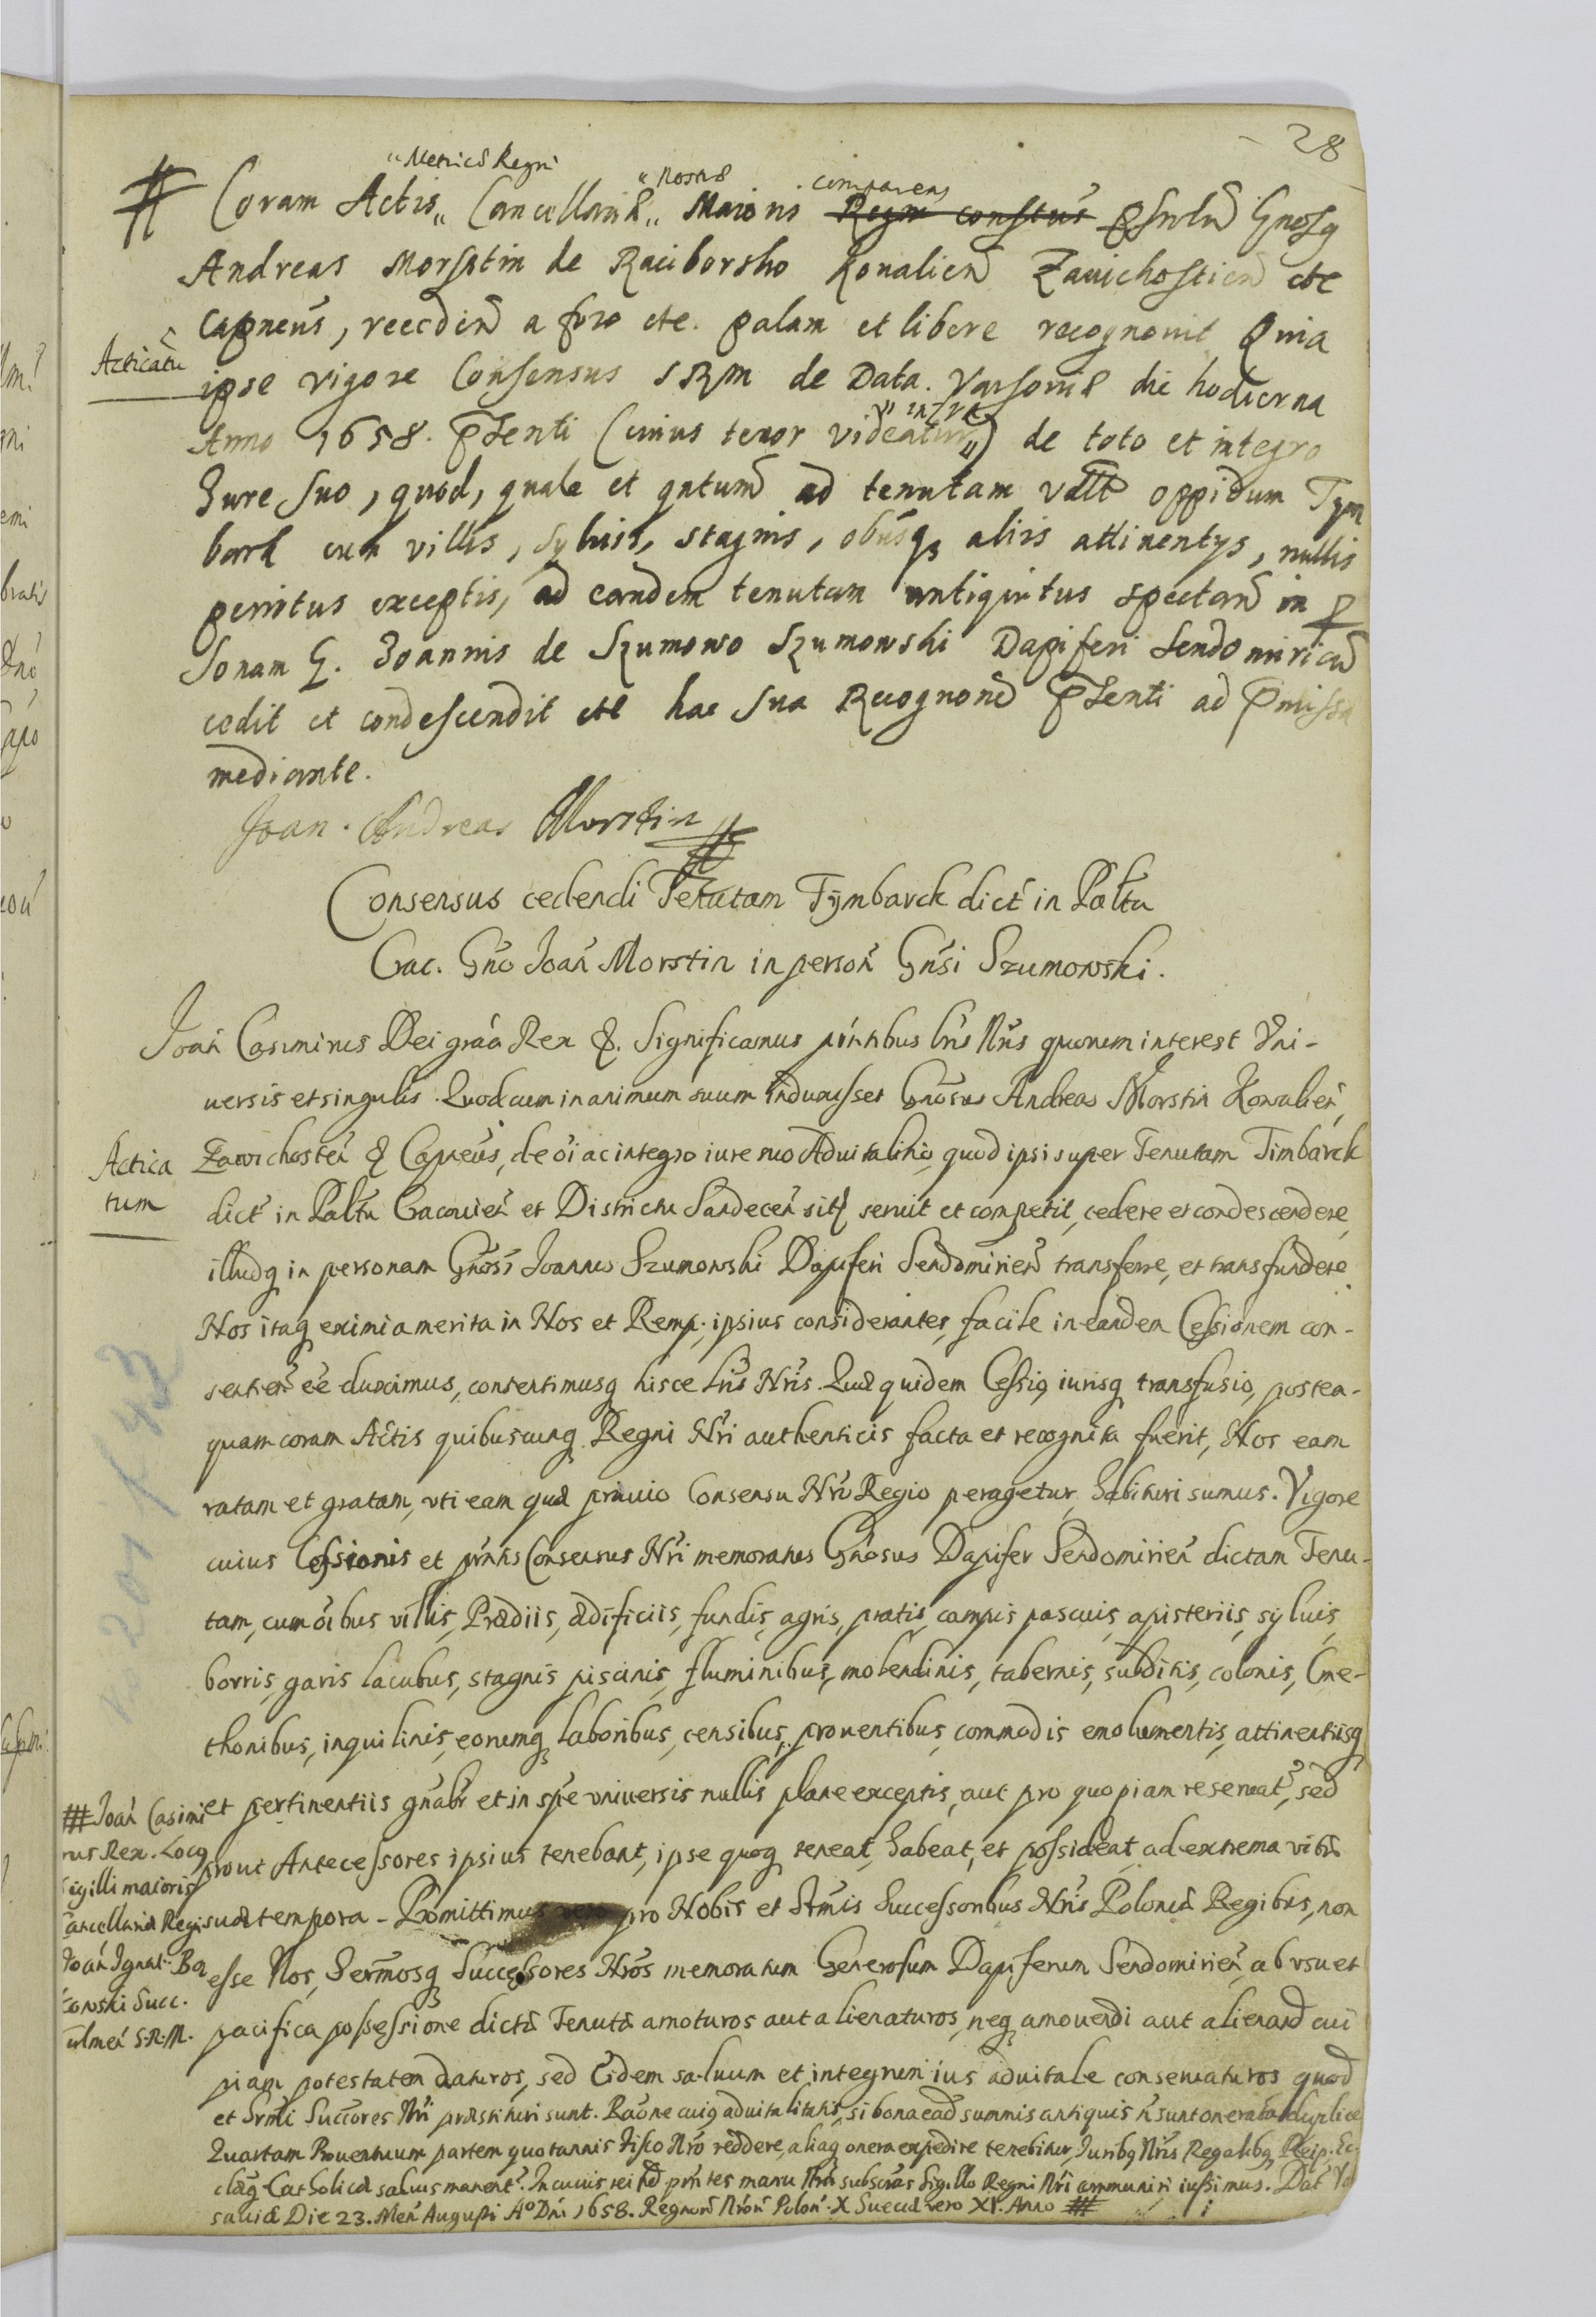 28
"Metricę Regni
"Nostrę
comparens
# Coram Actis,, Cancellarię,, Maioris Regni constus psonlr Gnosq
Andreas Morsztin de Raciborsko Kovalien Zawichostien etc
Capneus, recedens a foro etc. palam et libere recognovit Quia
Acticatu
ipse vigore Consensus SRM de Data. Varsovię die hodierna
" infra
Anno 1658. psenti (cuius tenor videatur,,) de toto et integro
Jure suo, quod, quale et qntum ad tenutam vlt oppidum Tym
bark cum villis, sylvis, stagnis, oibusq aliis attinentys, nullis
penitus exceptis, ad eandem tenutam antiquitus spectan in p
sonam G. Joannis de Szumowo Szumowski Dapiferi Sendomirien
cedit et condescendit etc hac sua Recognone psenti ad pmissa
mediante.
Joan. Andreas Morstin #
Consensus cedendi Tenutam Tymbarck dict in Paltu
Crac. Gno Joan Morstin in person Gnsi Szumowski.
Joan Casimirus Dei graa Rex &. Significamus pntibus lris Nris quorum interest Vni-
uersis et singulis. Quod cum in animum suum induxisset Gnosus Andreas Morstin Kowalien,
Actica
tum
Zawichosten & Capneus, de oi ac integro iure suo Aduitalitio, quod ipsi super Tenutam Timbarck
dict in Paltu Cracouien et Districtu Sandecen sit seruit et competit, cedere et condescendere,
illudq in personam Gnosi Joannis Szumowski Dapiferi Sendomirien transferre, et transfundere.
Nos itaq eximia merita in Nos et Remp. ipsius considerantes, facile in eandem Cessionem con-
sentien ee duximus, consentimusq hisce lris Nris. Quę quidem Cessio, iurisq transfusio, postea-
quam coram Actis quibuscunq Regni Nri authenticis facta et recognita fuerit, Nos eam
ratam et gratam, vti eam quę prąuio Consensu Nro Regio peragetur, habituri sumus. Vigore
cuius Cessionis et pntis Consensus Nri memoratus Gnosus Dapifer Sendomirien dictam Tenu-
tam, cum oibus villis, Prędiis, ędificiis, fundis, agris, pratis, campis pascuis, apisteriis, syluis,
borris, garis lacubus, stagnis piscinis, fluminibus, molendinis, tabernis, subditis, colonis, Cme-
thonibus, inquilinis, eorumq laboribus, censibus, prouentibus, commodis emolumentis, attinentiisq
et pertinentiis gnalr et in spe vniuersis nullis plane exceptis, aut pro quopiam reseruat, sed
prout Antecessores ipsius tenebant, ipse quoq teneat, habeat, et possideat, ad extrema vitę
suę tempora. Promittimus vero pro Nobis et Srmis Successoribus Nris Polonię Regibus, non
esse Nos, Sermosq Successores Nros memoratum Generosum Dapiferum Sendomirien, ab vsu et
pacifica possessione dictę Tenutę amoturos aut alienaturos, neq amouendi aut alienand cui
piam potestatem daturos, sed Eidem saluum et integrum ius aduitale conseruaturos quod
et Srmi Succores Nri pręstituri sunt. Raone cuiq aduitalitatis, si bona ead summis antiquis n sunt onerata duplice
Quartam Prouentuum partem quotannis Fisco Nro reddere, aliaq onera expedire tenebitur, Juribq Nris Regalibq Reip. Ec
clię Catholicę saluis manent. In cuius rei fid pntes manu Nra subscras Sigillo Regni Nri communiri iussimus. Dat Var
sauię Die 23. Men Augusti Ao Dni 1658. Regnor Nror Polon. X Suecię vero XI. Anno #
# Joan Casimi
rus Rex. Locq
sigilli maioris
Cancellarię Regi
Joan Ignat. Bą
kowski Succ.
Culmen S.R.M.